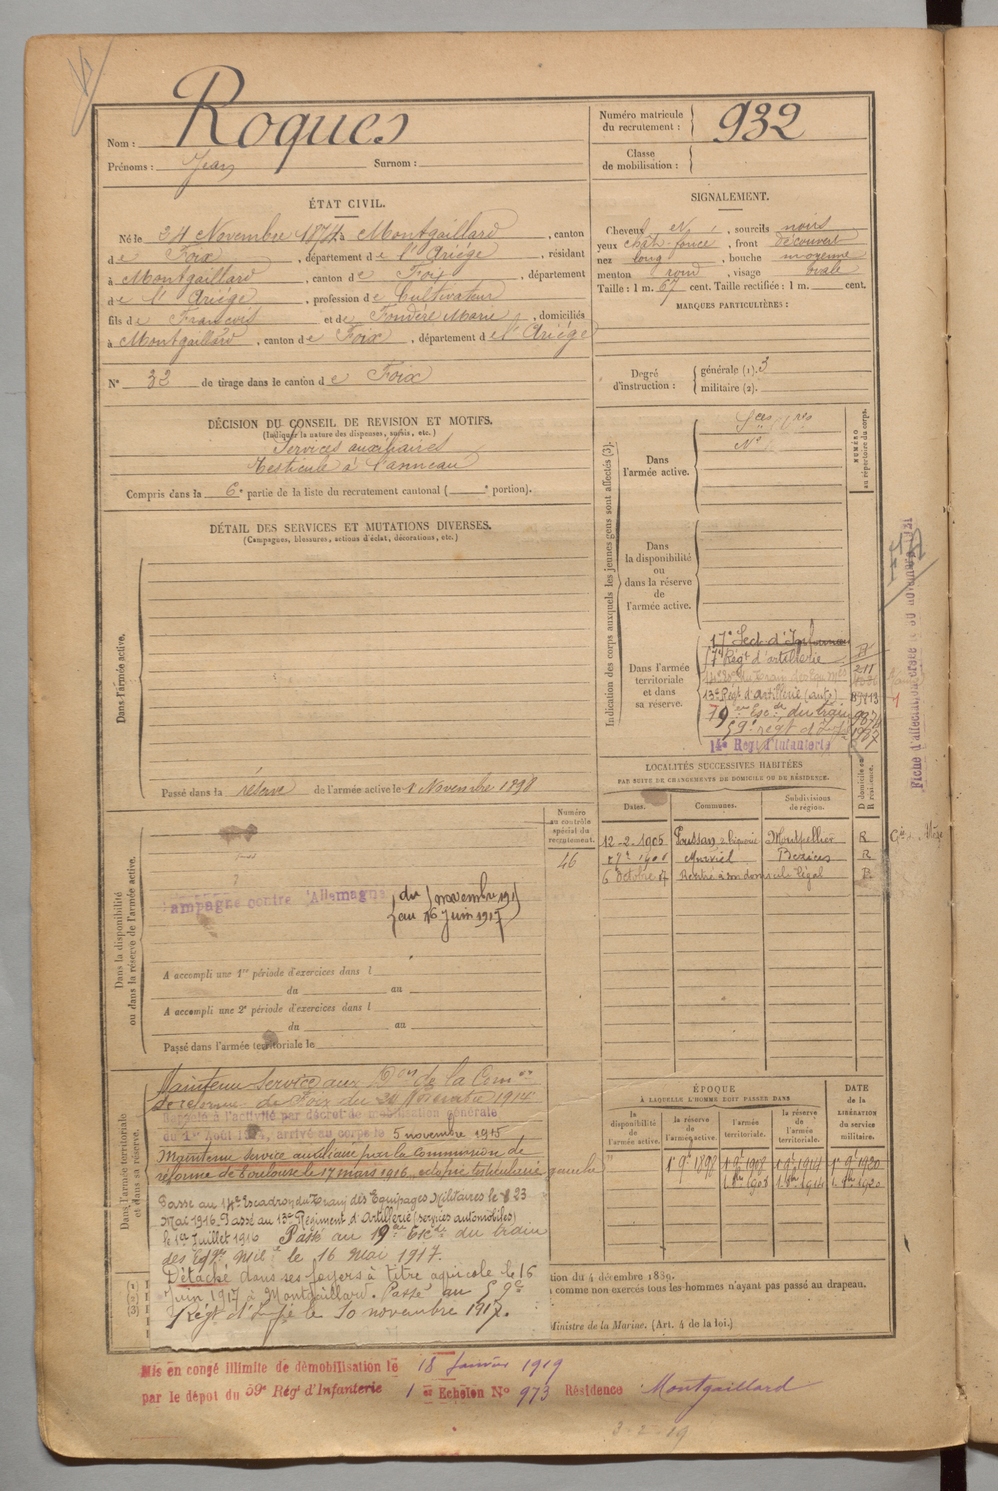 Nom : Roques
Prénoms : Jean Surnom :
Numéro matricule
du recrutement : 932
Classe
de mobilisation :
ÉTAT CIVIL.
Né le 24 Novembre 1874 à Montgaillard, canton
de Foix, département de l'Ariège, résidant
à Montgaillard, canton de Foix, département
de l'Ariège, profession de Cultivateur
fils de François et de Fondère Marie, domiciliés
à Montgaillard, canton de Foix, département de l'Ariège
N° 32 de tirage dans le canton de Foix
SIGNALEMENT.
Cheveux N, sourcils noirs
yeux chât. foncé, front découvert
nez long, bouche moyenne
menton rond, visage ovale
Taille : 1 m. 67 cent. Taille rectifiée : 1 m. cent.
MARQUES PARTICULIÈRES :
Degré
d'instruction :
générale (1). 3
militaire (2).
DÉCISION DU CONSEIL DE REVISION ET MOTIFS.
(Indiquer la nature des dispenses, sursis, etc.)
Services auxiliaires
Testicule à l'anneau
Compris dans la 6e partie de la liste du recrutement cantonal ( e portion).
DÉTAIL DES SERVICES ET MUTATIONS DIVERSES.
(Campagnes, blessures, actions d'éclat, décorations, etc.)
Dans l'armée active.
Passé dans la réserve de l'armée active le 1 Novembre 1898
Indication des corps auxquels les jeunes gens sont affectés (3).
NUMÉRO
au répertoire du corps.
Dans
l'armée active.
N°
Dans
la disponibilité
ou
dans la réserve
de
l'armée active.
Dans l'armée
territoriale
et dans
sa réserve.
17e Sect. d'
Régt d'artillerie 211
13e Régt d'Artillerie (auto)
19e Esc. du train
59e régt d'Inf
14e Régt d'Infanterie
Fiche d'affectation
LOCALITÉS SUCCESSIVES HABITÉES
PAR SUITE DE CHANGEMENTS DE DOMICILE OU DE RÉSIDENCE.
Dates. Communes. Subdivisions
de région.
D domicile ou
R résidence.
12-2-1905 Poussan Montpellier R
1906 Murviel Beziers R
6 Octobre Rentré à son domicile légal
Dans la disponibilité
ou dans la réserve de l'armée active.
Numéro
au contrôle
spécial du
recrutement.
46
Campagne contre l'Allemagne du 5 novembre 191
au 16 Juin 1917
A accompli une 1re période d'exercices dans l
du au
A accompli une 2e période d'exercices dans l
du au
Passé dans l'armée territoriale le
Dans l'armée territoriale
et dans sa réserve.
Maintenu Service aux Don de la Comon
de réforme de Foix du 24 Novembre 1914
Rappelé à l'activité par décret de mobilisation générale
du 1er Août 1914, arrivé au corps le 5 novembre 1915
Maintenu Service auxiliaire par la Commission de
réforme de Toulouse le 17 mars 1916. ectopie testiculaire gauche
Passé au 14e Escadron du Train des Equipages Militaires le 23
Mai 1916. Passé au 13e Régiment d'Artillerie (services automobiles)
le 1er Juillet 1916 Passé au 19e Esc. du train
des Eqp. Milre le 16 Mai 1917.
Détaché dans ses foyers à titre agricole le 16
Juin 1917 à Montgaillard. Passé au 59e
Régt d'Infie le 10 novembre 1917.
ÉPOQUE
À LAQUELLE L'HOMME DOIT PASSER DANS
la
disponibilité
de
l'armée active.
la réserve
de
l'armée active.
l'armée
territoriale.
la
réserve
de
l'armée
territoriale.
DATE
de la
LIBÉRATION
du service
militaire.
1r 9e 1898 1r 9e 1908 1r 9e 1914 1r 9e 1920
tion du 4 décembre 1889.
comme non exercés tous les hommes n'ayant pas passé au drapeau.
Ministre de la Marine. (Art. 4 de la loi.)
Mis en congé illimité de démobilisation le 18 Janvier 1919
par le dépot du 59e Régt d'Infanterie 1 er Echelon N° 973 Résidence Montgaillard
3-2-19